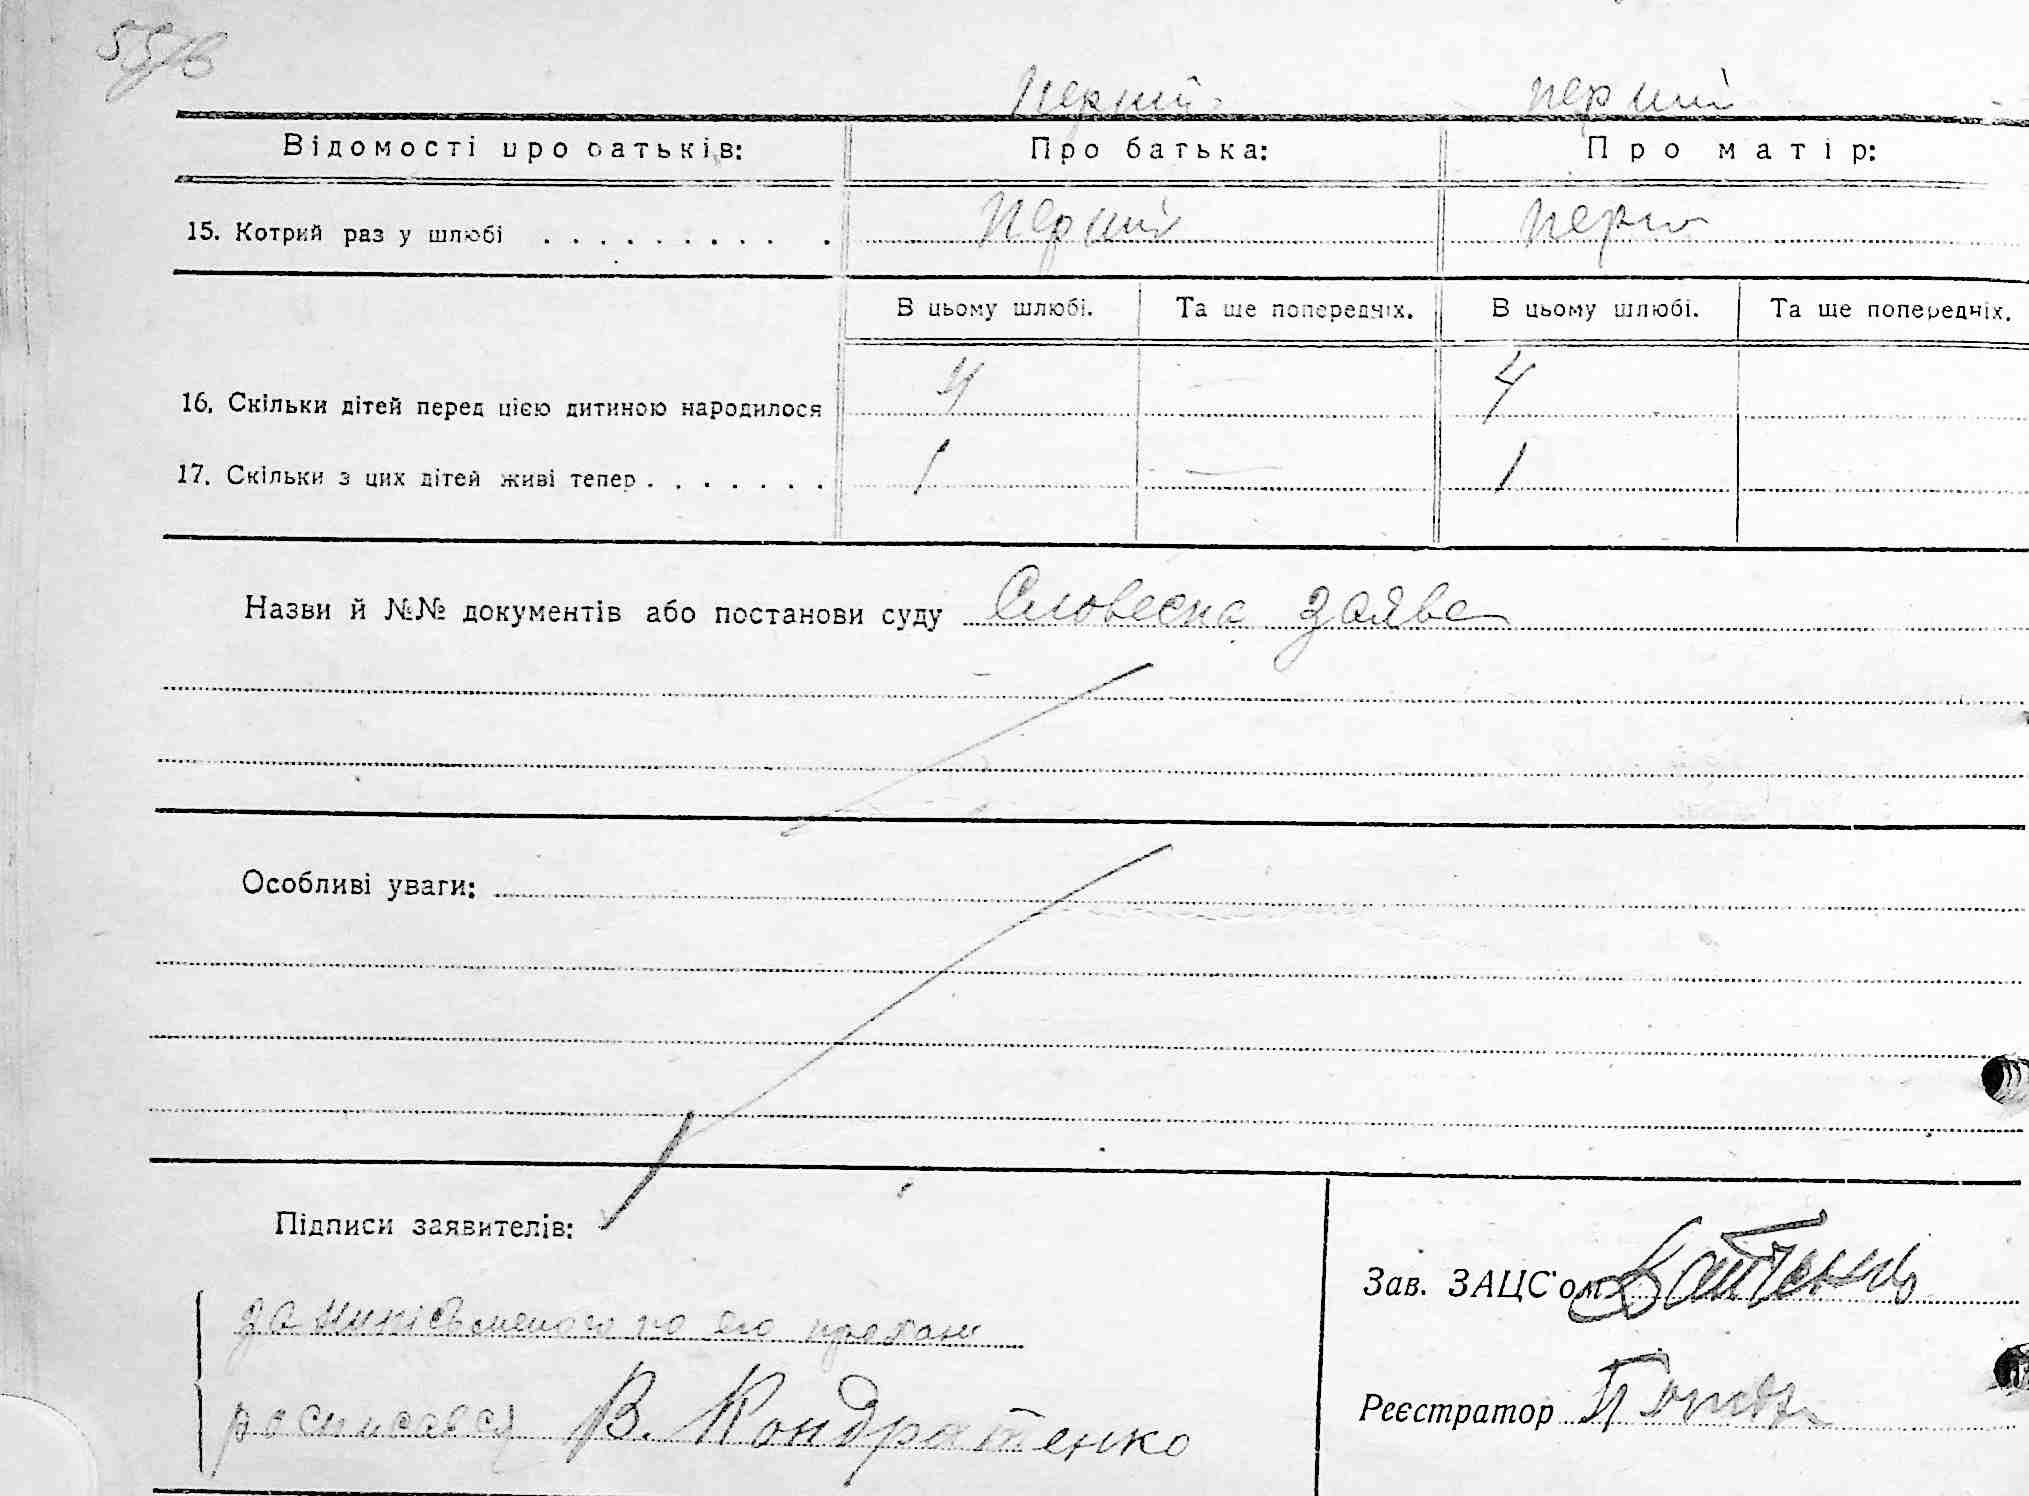 перший перший
Відомості про батьків: Про батька: Про матір:
15. Котрий раз у шлюбі . . . . . . . . . . перший перш
В цьому шлюбі. Та ще попередніх. В цьому шлюбі. Та ще попередніх.
16. Скільки дітей перед цією дитиною народилося 4 — 4
17. Скільки з цих дітей живі тепер . . . . . . . 1 — 1
Назви й №№ документів або постанови суду Словесна заява
Особливі уваги:
Підписи заявителів:
Зав. ЗАЦС'ом
за
Реєстратор
росписався В. Кондратенко